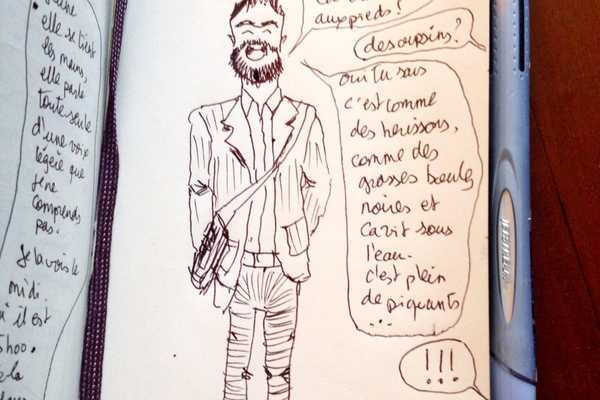 elle se tient
les mains,
elle parle
toute seule
d'une voix
légère que
je ne
comprends
pas.
Je la vois le
midi.
aux pieds?
des oursins?
oui tu sais
c'est comme
des herissons,
comme des
grosses boules
noires et
ca vit sous
l'eau.
c'est plein
de piquants
...
!!!